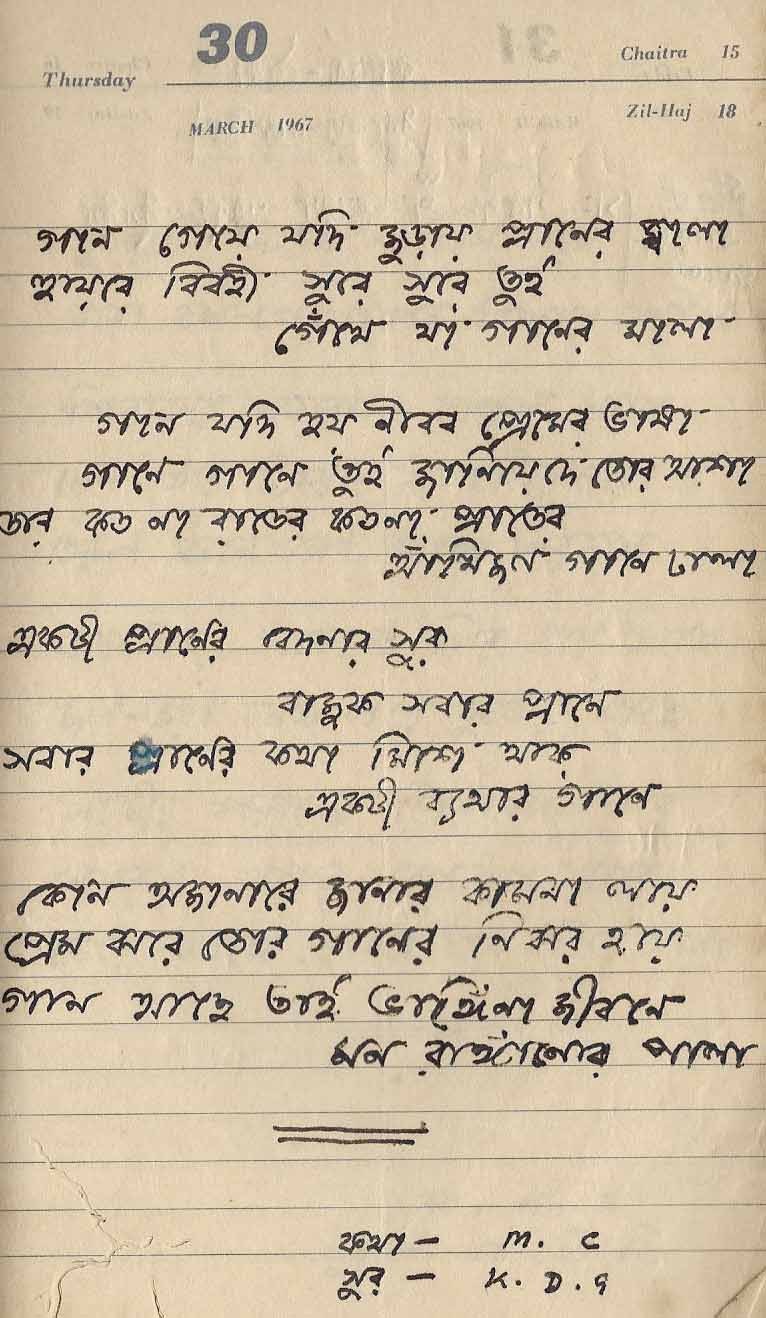 30
Chaitra 15
Thursday
MARCH 1967
Zil-Haj 18
গান গেয়ে যদি জুড়ায় প্রানের জ্বালা
হায়রে বিবহী সুরে সুরে তুই
গেঁথে যা গানের মালা
গান যদি হয় নীরব প্রেমের ভাষা
গানে গানে তুই জানিয়ে দে তোর আশা
তার কত না রাতের কতনা প্রাতের
আঁখিজল গানে ঢালা
একটী প্রানের বেদনার সুর
বাজুক সবার প্রানে
সবার প্রানের কথা মিশে থাক
একটী ব্যথার গানে
কোন অজানারে জানার কামনা লয়ে
প্রেম ঝরে তোর গানের নিঝর হয়ে
গান আছে তাই ভাঙ্গেনা জীবনে
মন রাঙ্গানোর পালা
কথা – M. C
সুর – K. D. G